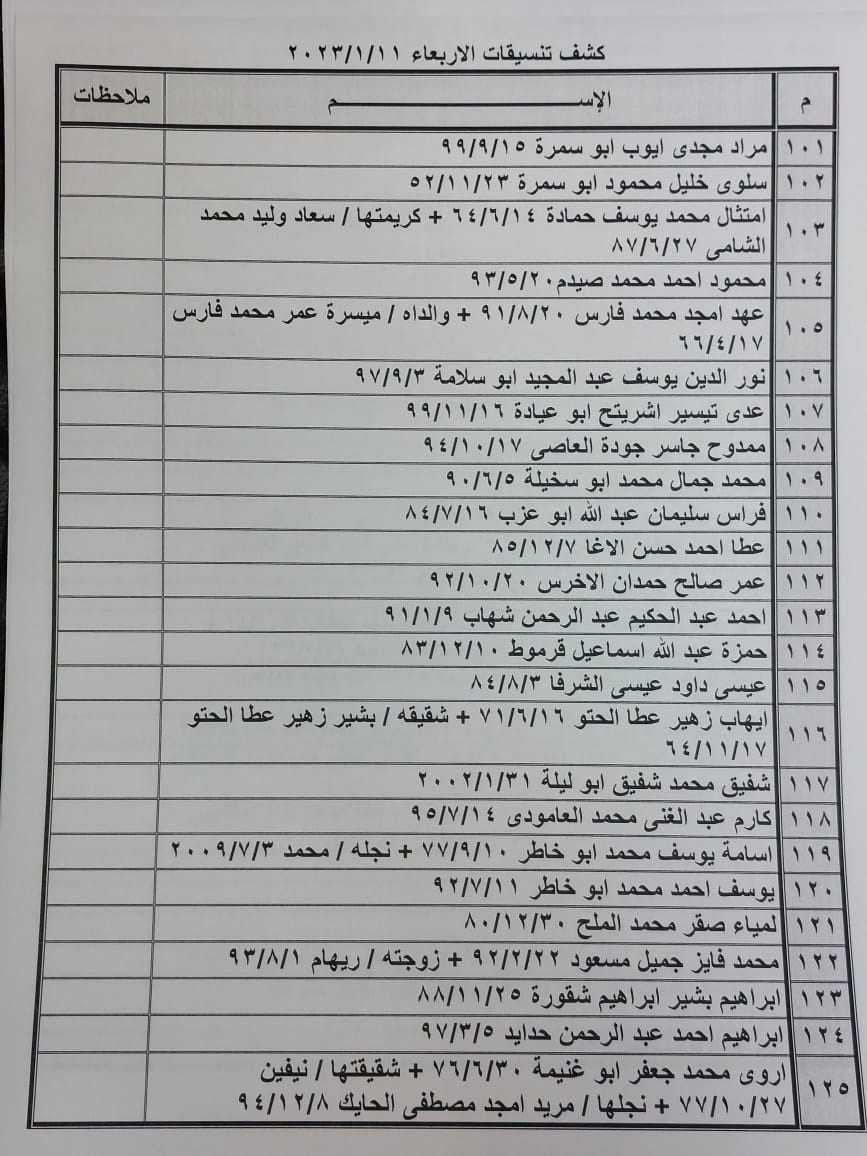 كشف تنسيقات الاربعاء ٢٠٢٣/١/١١
م الإســـــــــم ملاحظات
١٠١ مراد مجدى ايوب ابو سمرة ٩٩/٩/١٥
١٠٢ سلوى خليل محمود ابو سمرة ٥٢/١١/٢٣
١٠٣ امتثال محمد يوسف حمادة ٦٤/٦/١٤ + كريمتها / سعاد وليد محمد
الشامى ٨٧/٦/٢٧
١٠٤ محمود احمد محمد صيدم ٩٣/٥/٢٠
١٠٥ عهد امجد محمد فارس ٩١/٨/٢٠ + والداه / ميسرة عمر محمد فارس
٦٦/٤/١٧
١٠٦ نور الدين يوسف عبد المجيد ابو سلامة ٩٧/٩/٣
١٠٧ عدى تيسير اشريتح ابو عيادة ٩٩/١١/١٦
١٠٨ ممدوح جاسر جودة العاصى ٩٤/١٠/١٧
١٠٩ محمد جمال محمد ابو سخيلة ٩٠/٦/٥
١١٠ فراس سليمان عبد الله ابو عزب ٨٤/٧/١٦
١١١ عطا احمد حسن الاغا ٨٥/١٢/٧
١١٢ عمر صالح حمدان الاخرس ٩٢/١٠/٢٠
١١٣ احمد عبد الحكيم عبد الرحمن شهاب ٩١/١/٩
١١٤ حمزة عبد الله اسماعيل قرموط ٨٣/١٢/١٠
١١٥ عيسى داود عيسى الشرفا ٨٤/٨/٣
١١٦ ايهاب زهير عطا الحتو ٧١/٦/١٦ + شقيقه / بشير زهير عطا الحتو
٦٤/١١/١٧
١١٧ شفيق محمد شفيق ابو ليلة ٢٠٠٢/١/٣١
١١٨ كارم عبد الغنى محمد العامودى ٩٥/٧/١٤
١١٩ اسامة يوسف محمد ابو خاطر ٧٧/٩/١٠ + نجله / محمد ٢٠٠٩/٧/٣
١٢٠ يوسف احمد محمد ابو خاطر ٩٢/٧/١١
١٢١ لمياء صقر محمد الملح ٨٠/١٢/٣٠
١٢٢ محمد فايز جميل مسعود ٩٢/٢/٢٢ + زوجته / ريهام ٩٣/٨/١
١٢٣ ابراهيم بشير ابراهيم شقورة ٨٨/١١/٢٥
١٢٤ ابراهيم احمد عبد الرحمن حدايد ٩٧/٣/٥
١٢٥ اروى محمد جعفر ابو غنيمة ٧٦/٦/٣٠ + شقيقتها / نيفين
٧٧/١٠/٢٧ + نجلها / مريد امجد مصطفى الحايك ٩٤/١٢/٨